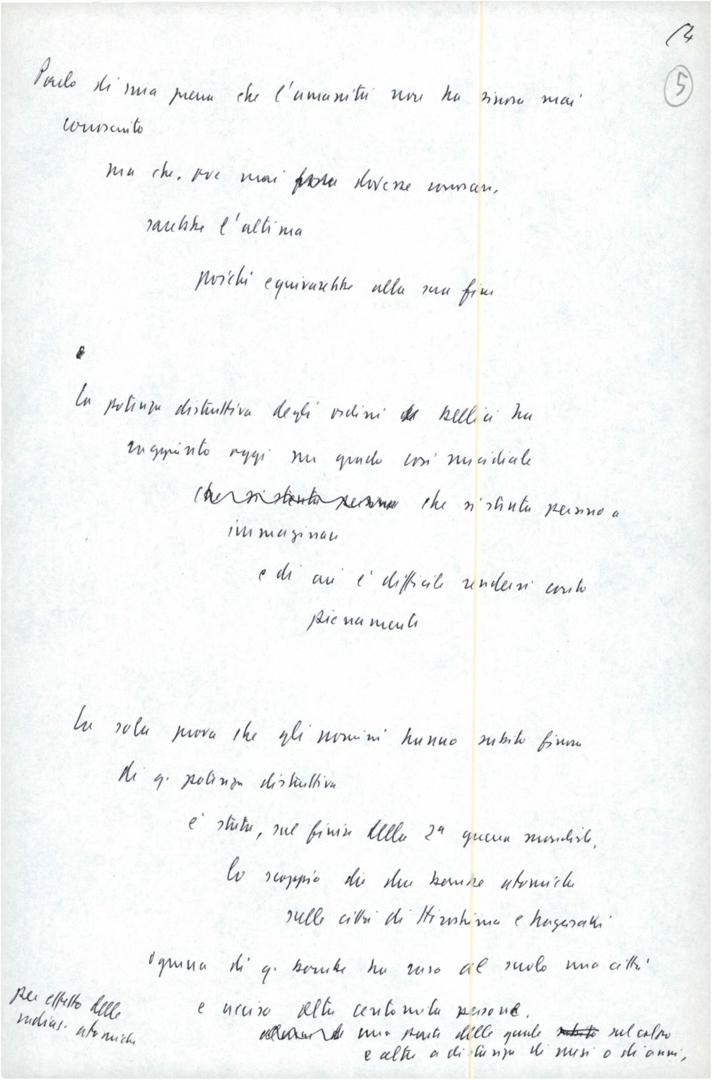 5
Parlo di una guerra che l'umanità non ha sinora mai
conosciuto
ma che, ove mai dovesse conoscere,
sarebbe l'ultima
poiché equivarrebbe alla sua fine
La potenza distruttiva degli ordini bellici ha
raggiunto oggi un grado così micidiale
che si stenta persino
che si stenta persino a
immaginare
e di cui è difficile rendersi conto
pienamente
La sola prova che gli uomini hanno subito finora
di q. potenza distruttiva
è stata, sul finire della 2ª guerra mondiale,
lo scoppio di due bombe atomiche
sulle città di Hiroshima e Nagasaki
ognuna di q. bombe ha raso al suolo una città
e ucciso oltre centomila persone,
una parte delle quali subito sul colpo
e altre a distanza di mesi o di anni,
per effetto delle
radiaz. atomiche